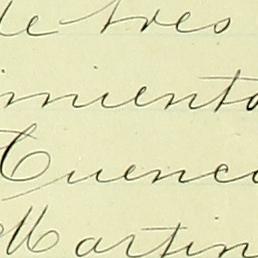 de tres
imiento
Cuenca
Martin